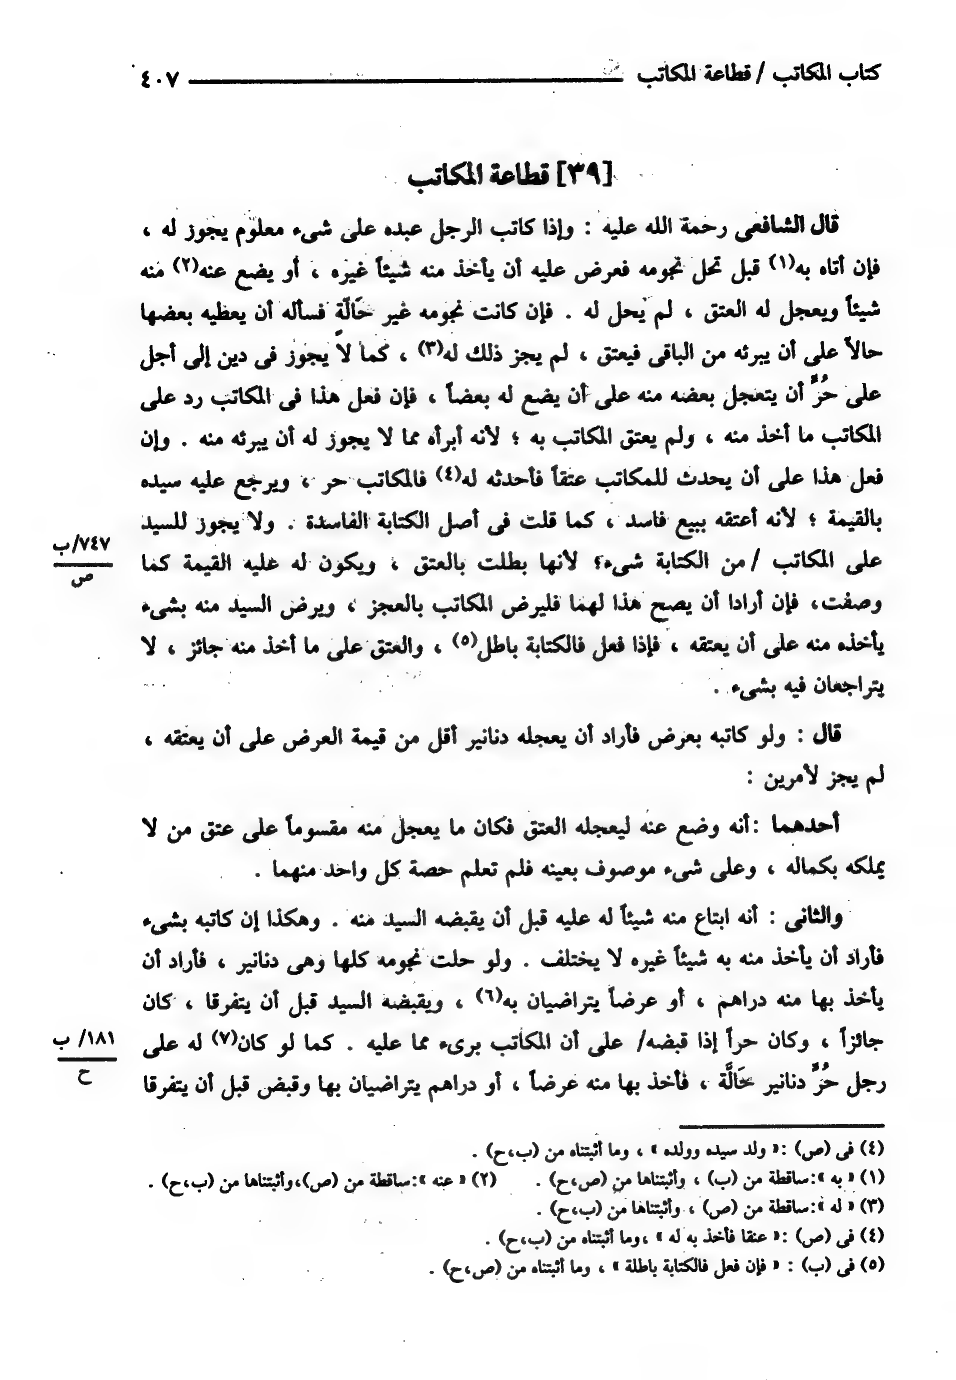 كتاب المكاتب / قطاعة المكاتب ــــــــــــــ ٤٠٧
[٣٩] قطاعة المكاتب
قال الشافعى رحمة الله عليه : وإذا كاتب الرجل عبده على شىء معلوم يجوز له ،
فإن أتاه به(١) قبل تحل نجومه فعرض عليه أن يأخذ منه شيئاً غيره ، أو يضع عنه(٢) منه
شيئاً ويعجل له العتق ، لم يحل له . فإن كانت نجومه غير حَالَّةٍ فسأله أن يعطيه بعضها
حالاً على أن يبرئه من الباقى فيعتق ، لم يجز ذلك له(٣) ، كما لا يجوز فى دين إلى أجل
على حُرٍّ أن يتعجل بعضه منه على أن يضع له بعضاً ، فإن فعل هذا فى المكاتب رد على
المكاتب ما أخذ منه ، ولم يعتق المكاتب به ؛ لأنه أبرأه مما لا يجوز له أن يبرئه منه . وإن
فعل هذا على أن يحدث للمكاتب عتقاً فأحدثه له(٤) فالمكاتب حر ، ويرجع عليه سيده
بالقيمة ؛ لأنه أعتقه ببيع فاسد ، كما قلت فى أصل الكتابة الفاسدة . ولا يجوز للسيد
على المكاتب / من الكتابة شىء؛ لأنها بطلت بالعتق ، ويكون له عليه القيمة كما
٧٤٧/ب
ص
وصفت، فإن أرادا أن يصح هذا لهما فليرض المكاتب بالعجز ، ويرض السيد منه بشىء
يأخذه منه على أن يعتقه ، فإذا فعل فالكتابة باطل(٥) ، والعتق على ما أخذ منه جائز ، لا
يتراجعان فيه بشىء .
قال : ولو كاتبه بعرض فأراد أن يعجله دنانير أقل من قيمة العرض على أن يعتقه ،
لم يجز لأمرين :
أحدهما : أنه وضع عنه ليعجله العتق فكان ما يعجل منه مقسوماً على عتق من لا
يملكه بكماله ، وعلى شىء موصوف بعينه فلم تعلم حصة كل واحد منهما .
والثانى : أنه ابتاع منه شيئاً له عليه قبل أن يقبضه السيد منه . وهكذا إن كاتبه بشىء
فأراد أن يأخذ منه به شيئاً غيره لا يختلف . ولو حلت نجومه كلها وهى دنانير ، فأراد أن
يأخذ بها منه دراهم ، أو عرضاً يتراضيان به(٦) ، ويقبضه السيد قبل أن يتفرقا ، كان
جائزاً ، وكان حراً إذا قبضه/ على أن المكاتب برىء مما عليه . كما لو كان(٧) له على
١٨١/ ب
ح
رجل حُرٍّ دنانير حَالَّة ، فأخذ بها منه عرضاً ، أو دراهم يتراضيان بها وقبض قبل أن يتفرقا
(٤) فى (ص) :« ولد سيده وولده » ، وما أثبتناه من (ب،ح) .
(١) « به »:ساقطة من (ب) ، وأثبتناها من (ص،ح) . (٢) « عنه »:ساقطة من (ص)،وأثبتناها من (ب،ح) .
(٣) « له »:ساقطة من (ص) ، وأثبتناها من (ب،ح) .
(٤) فى (ص) :« عتقا فأخذ به له » ،وما أثبتناه من (ب،ح) .
(٥) فى (ب) : « فإن فعل فالكتابة باطلة » ، وما أثبتناه من (ص،ح) .